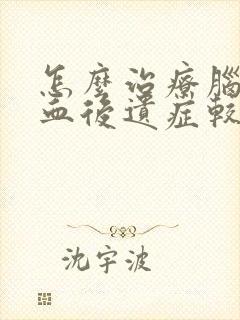 怎麼治療腦
血後遺症較
沈宇波